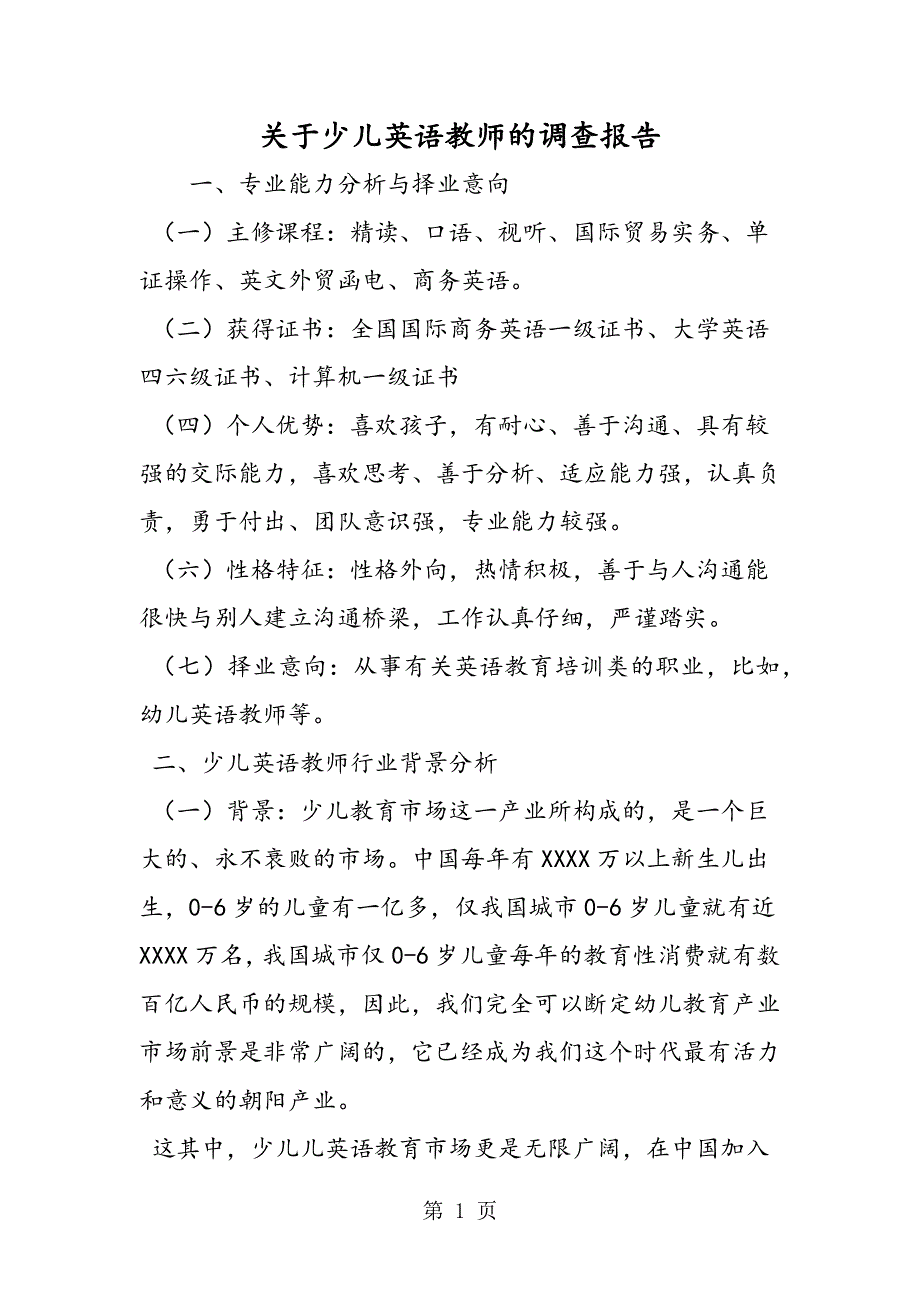 关于少儿英语教师的调查报告
一、专业能力分析与择业意向
（一）主修课程：精读、口语、视听、国际贸易实务、单
证操作、英文外贸函电、商务英语。
（二）获得证书：全国国际商务英语一级证书、大学英语
四六级证书、计算机一级证书
（四）个人优势：喜欢孩子，有耐心、善于沟通、具有较
强的交际能力，喜欢思考、善于分析、适应能力强，认真负
责，勇于付出、团队意识强，专业能力较强。
（六）性格特征：性格外向，热情积极，善于与人沟通能
很快与别人建立沟通桥梁，工作认真仔细，严谨踏实。
（七）择业意向：从事有关英语教育培训类的职业，比如，
幼儿英语教师等。
二、少儿英语教师行业背景分析
（一）背景：少儿教育市场这一产业所构成的，是一个巨
大的、永不衰败的市场。中国每年有XXXX万以上新生儿出
生，0-6岁的儿童有一亿多，仅我国城市0-6岁儿童就有近
XXXX万名，我国城市仅0-6岁儿童每年的教育性消费就有数
百亿人民币的规模，因此，我们完全可以断定幼儿教育产业
市场前景是非常广阔的，它已经成为我们这个时代最有活力
和意义的朝阳产业。
这其中，少儿儿英语教育市场更是无限广阔，在中国加入
第 1 页